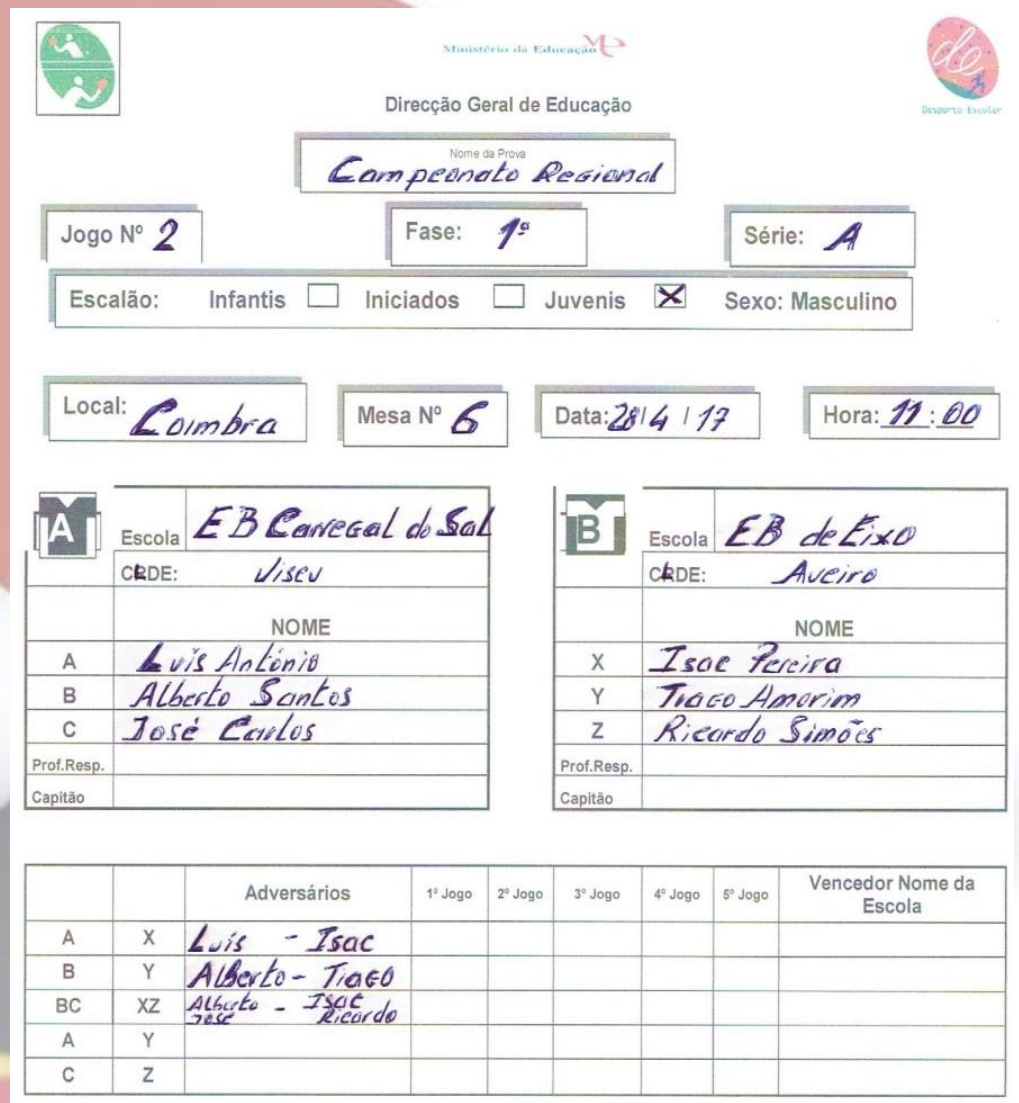 Ministério da Educação
Direcção Geral de Educação
de
Desporto Escolar
Nome da Prova
Campeonato Regional
Jogo Nº 2 Fase: 1ª Série: A
Escalão: Infantis Iniciados Juvenis X Sexo: Masculino
Local: Coimbra Mesa Nº 6 Data: 28/4/17 Hora: 11:00
A Escola EB Carregal do Sal
CLDE: Viseu
NOME
A Luís António
B Alberto Santos
C José Carlos
Prof.Resp.
Capitão
B Escola EB de Eixo
CLDE: Aveiro
NOME
X Isac Pereira
Y Tiago Amorim
Z Ricardo Simões
Prof.Resp.
Capitão
Adversários 1º Jogo 2º Jogo 3º Jogo 4º Jogo 5º Jogo Vencedor Nome da Escola
A X Luís - Isac
B Y Alberto - Tiago
BC XZ Alberto José - Isac Ricardo
A Y
C Z